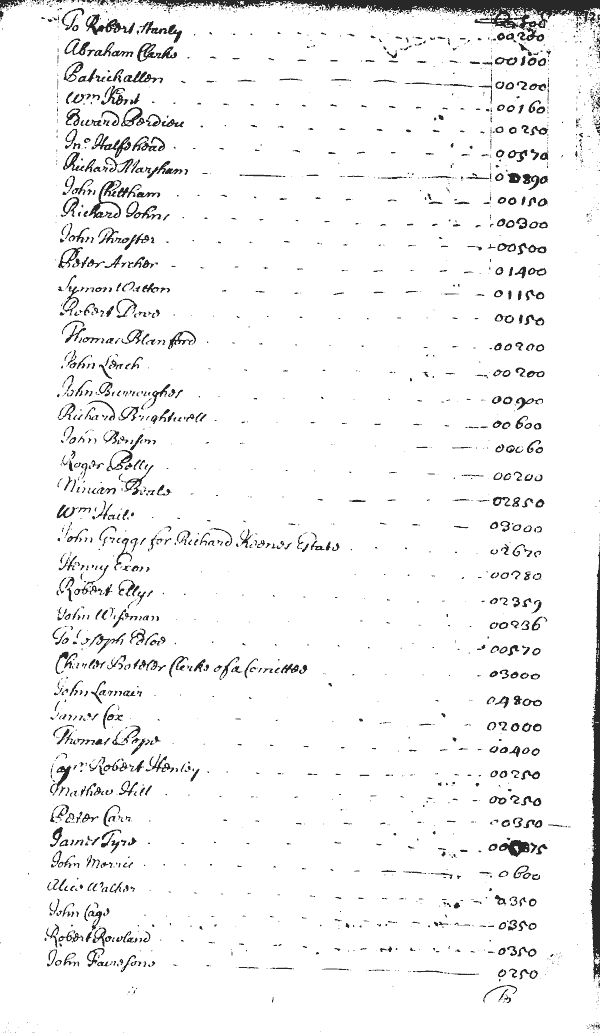 To Robert Hanly 00200
Abraham Clarke 00100
Patrick allen 00200
Wm. Kent 00160
Edward Perdieu 00250
Jno. Halfehead 00570
Richard Marsham 0 890
John Chittham 00150
Richard Johns 00300
John Throster 00500
Peter Archer 01400
Symon Watton 01150
Robert Dove 00150
Thomas Blanford 00200
John Leach 00200
John Burroughes 00900
Richard Brightwell 00600
John Benson 00060
Roger Belly 00200
Ninian Beale 02850
Wm. Haile 03000
John Griggs for Richard Keenes Estate 02670
Henry Exon 00280
Robert Ellys 02359
John Wiseman 00236
To Joseph Edloe 00570
Charles Boteler Clerke of a Comittee 03000
John Lamair 04800
James Cox 02000
Thomas Pope 00400
Capn. Robert Henley 00250
Mathew Hill 00250
Peter Carr 00350
James Tyre
John Morris 0600
Alice Walker 0350
John Cage 0350
Robert Rowland 0350
John Fairesons 0250
To